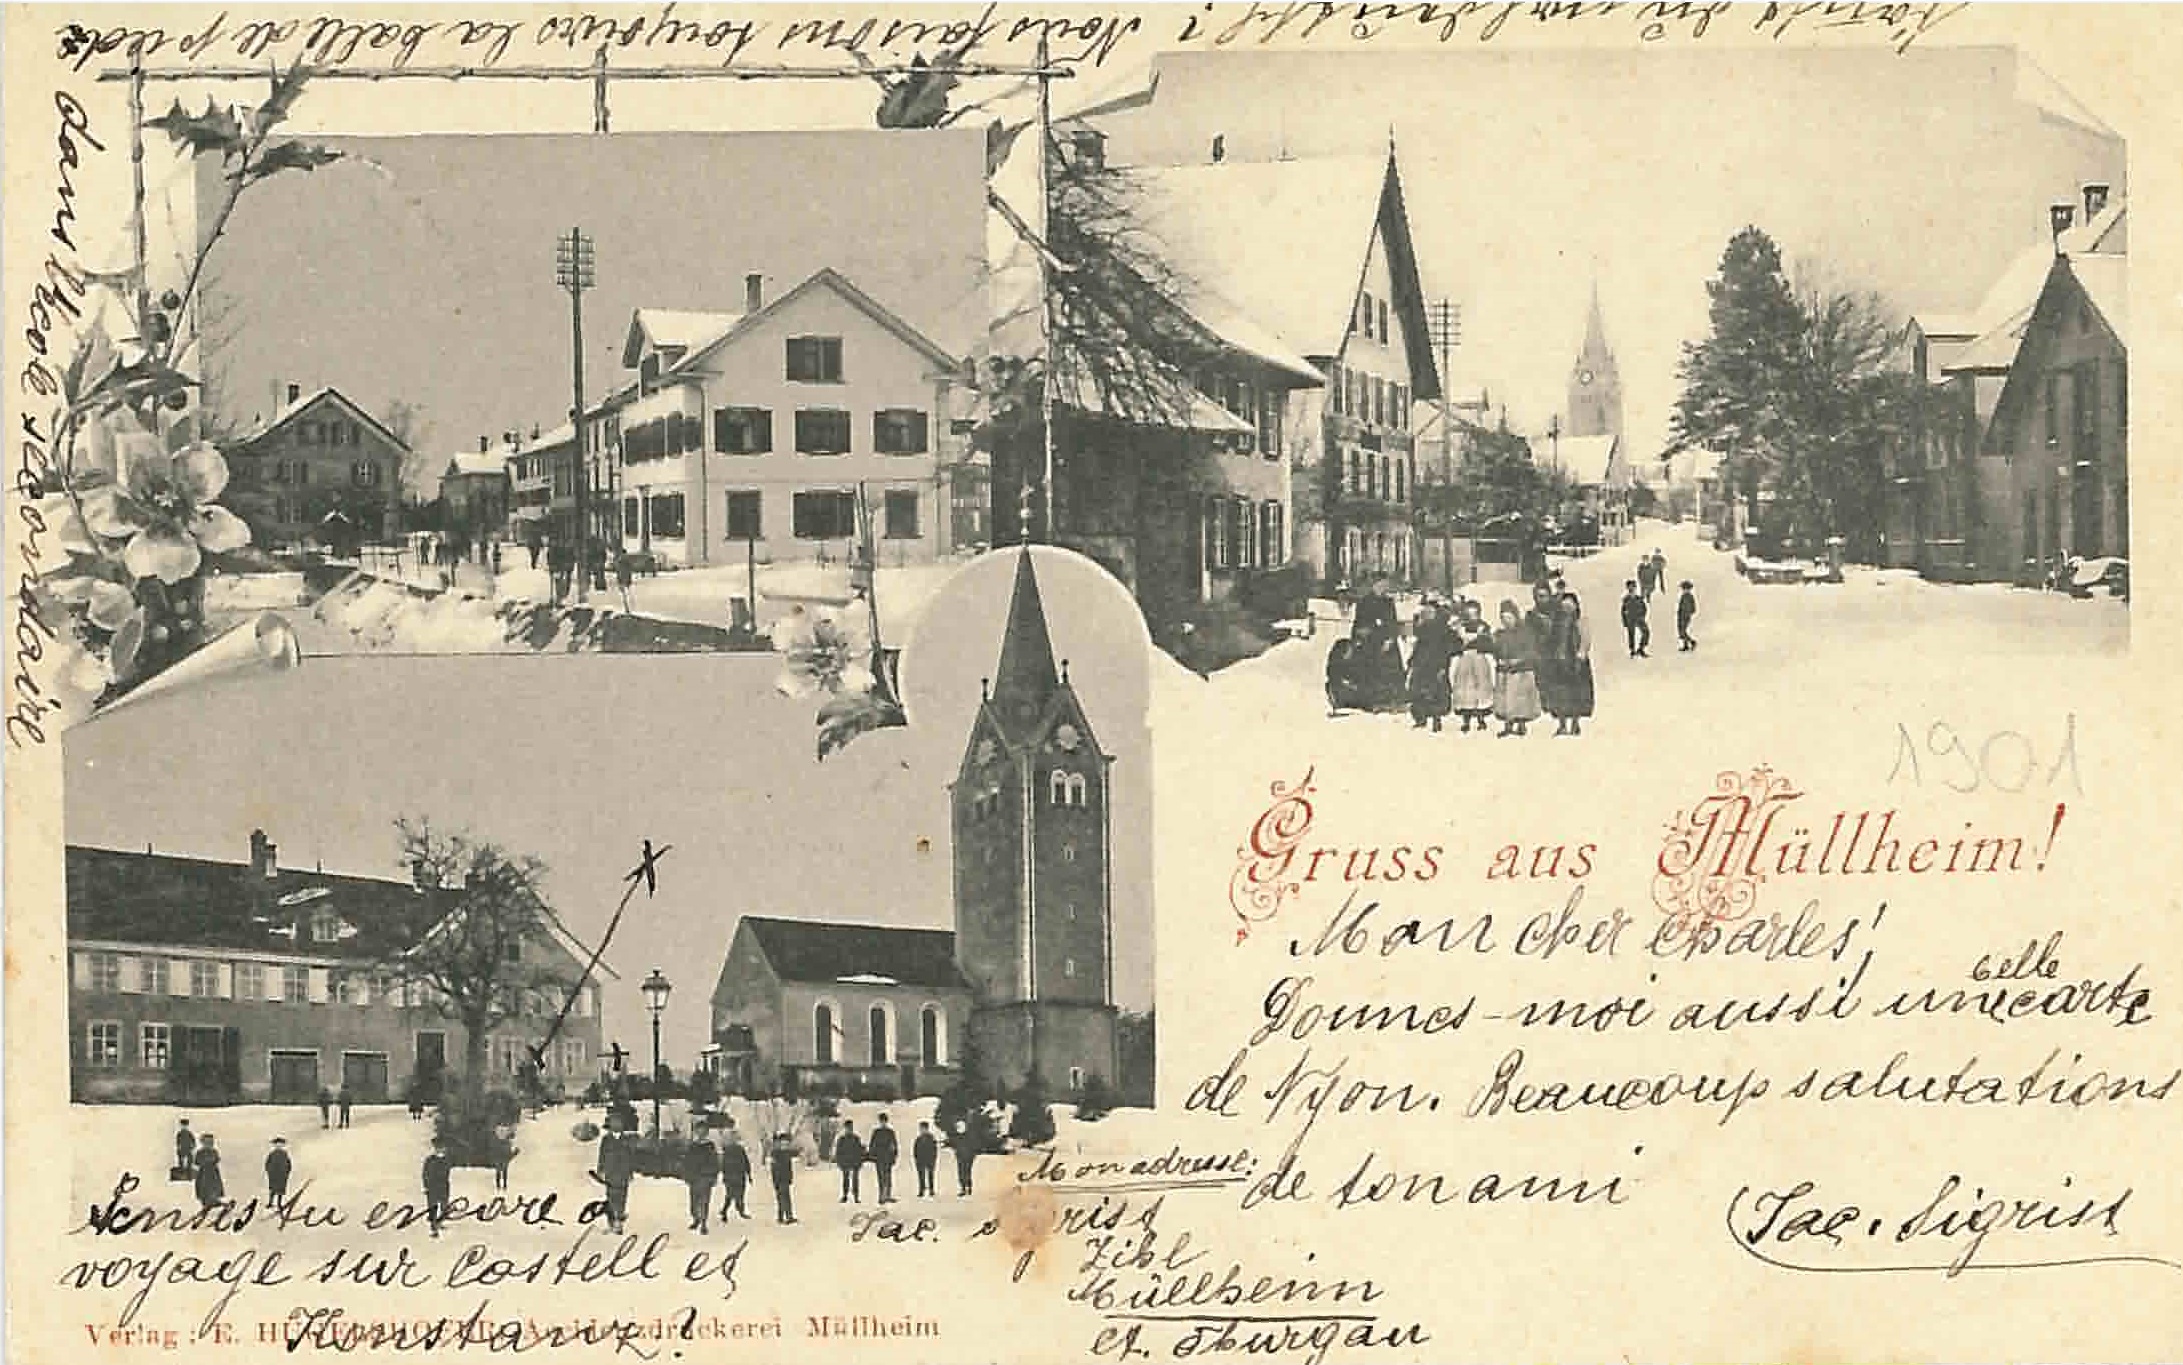 1901
Gruss aus Müllheim!
Mon cher Charles!
Donnes-moi aussi une belle carte
de Nyon. Beaucoup salutations
de ton ami
Jac. Sigrist
Mon adresse:
Jac. rist
Zihl
Müllheim
ct. Thurgau
tu encore
voyage sur Castell et
Konstanz?
Verlag: E. Müllheim
Nous faisons toujours la balle de pied
dans l'école secondaire